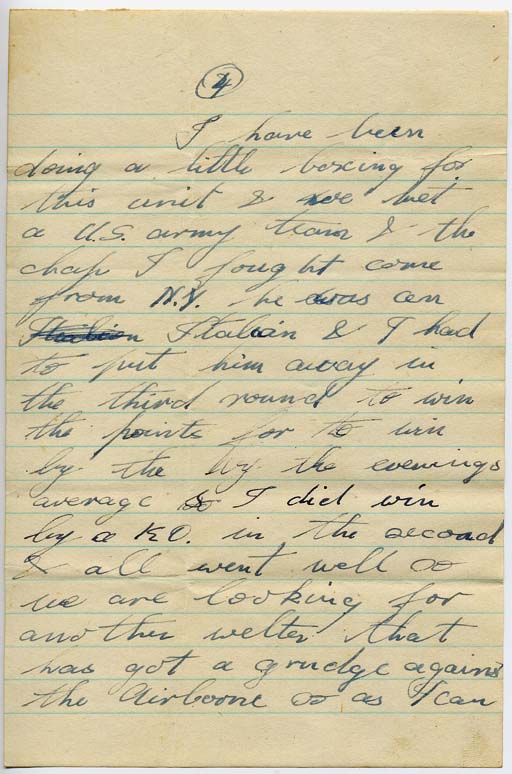 4
I have been
doing a little boxing for
this unit & we met
a U.S. army team & the
chap I fought come
from N.Y. he was an
Italian Italian & I had
to put him away in
the third round to win
the points for to win
by the by the evenings
average so I did win
by a K.O. in the second
& all went well so
we are looking for
another welter that
has got a grudge agains
the Airborne so as I can